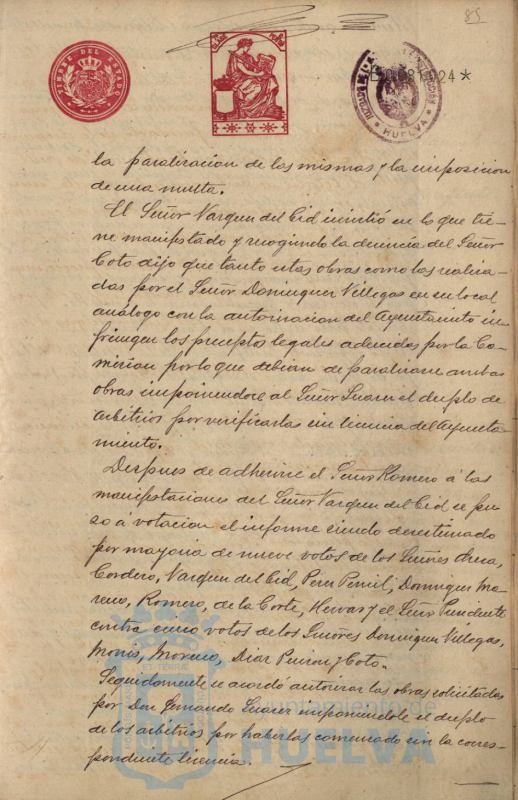 85
TIMBRE DEL ESTADO
HUELVA
la paralización de las mismas y la imposicion
de una multa.
El Señor Vazquez del Cid insistió en lo que tie-
ne manifestado y recogiendo la denuncia del Señor
Coto dijo que tanto estas obras como las realiza-
das por el Señor Dominguez Villegas en su local
análogo con la autorizacion del Ayuntamiento in-
fringen los preceptos legales aducidos por la Co-
misión por lo que debian de paralizarse ambas
obras imponiendose al Señor Suarez el duplo de
arbitrios por verificarlas sin licencia del Ayunta
miento.
Despues de adherirse el Señor Romero á las
manifestaciones del Señor Vazquez del Cid se pu-
so á votacion el informe siendo desestimado
por mayoria de nueve votos de los Señores
Cordero, Vazquez del Cid, Perez Dominguez Mo-
reno, Romero, de la Corte, Hervas y el Señor Presidente
contra cinco votos de los Señores Dominguez Villegas,
Monis, Moreno, Diaz y Coto.
Seguidamente se acordó autorizar las obras solicitadas
por Don Fernando Suarez imponiendole el duplo
de los arbitrios por haberlas comenzado sin la corres-
pondiente licencia.
Ayuntamiento de
HUELVA